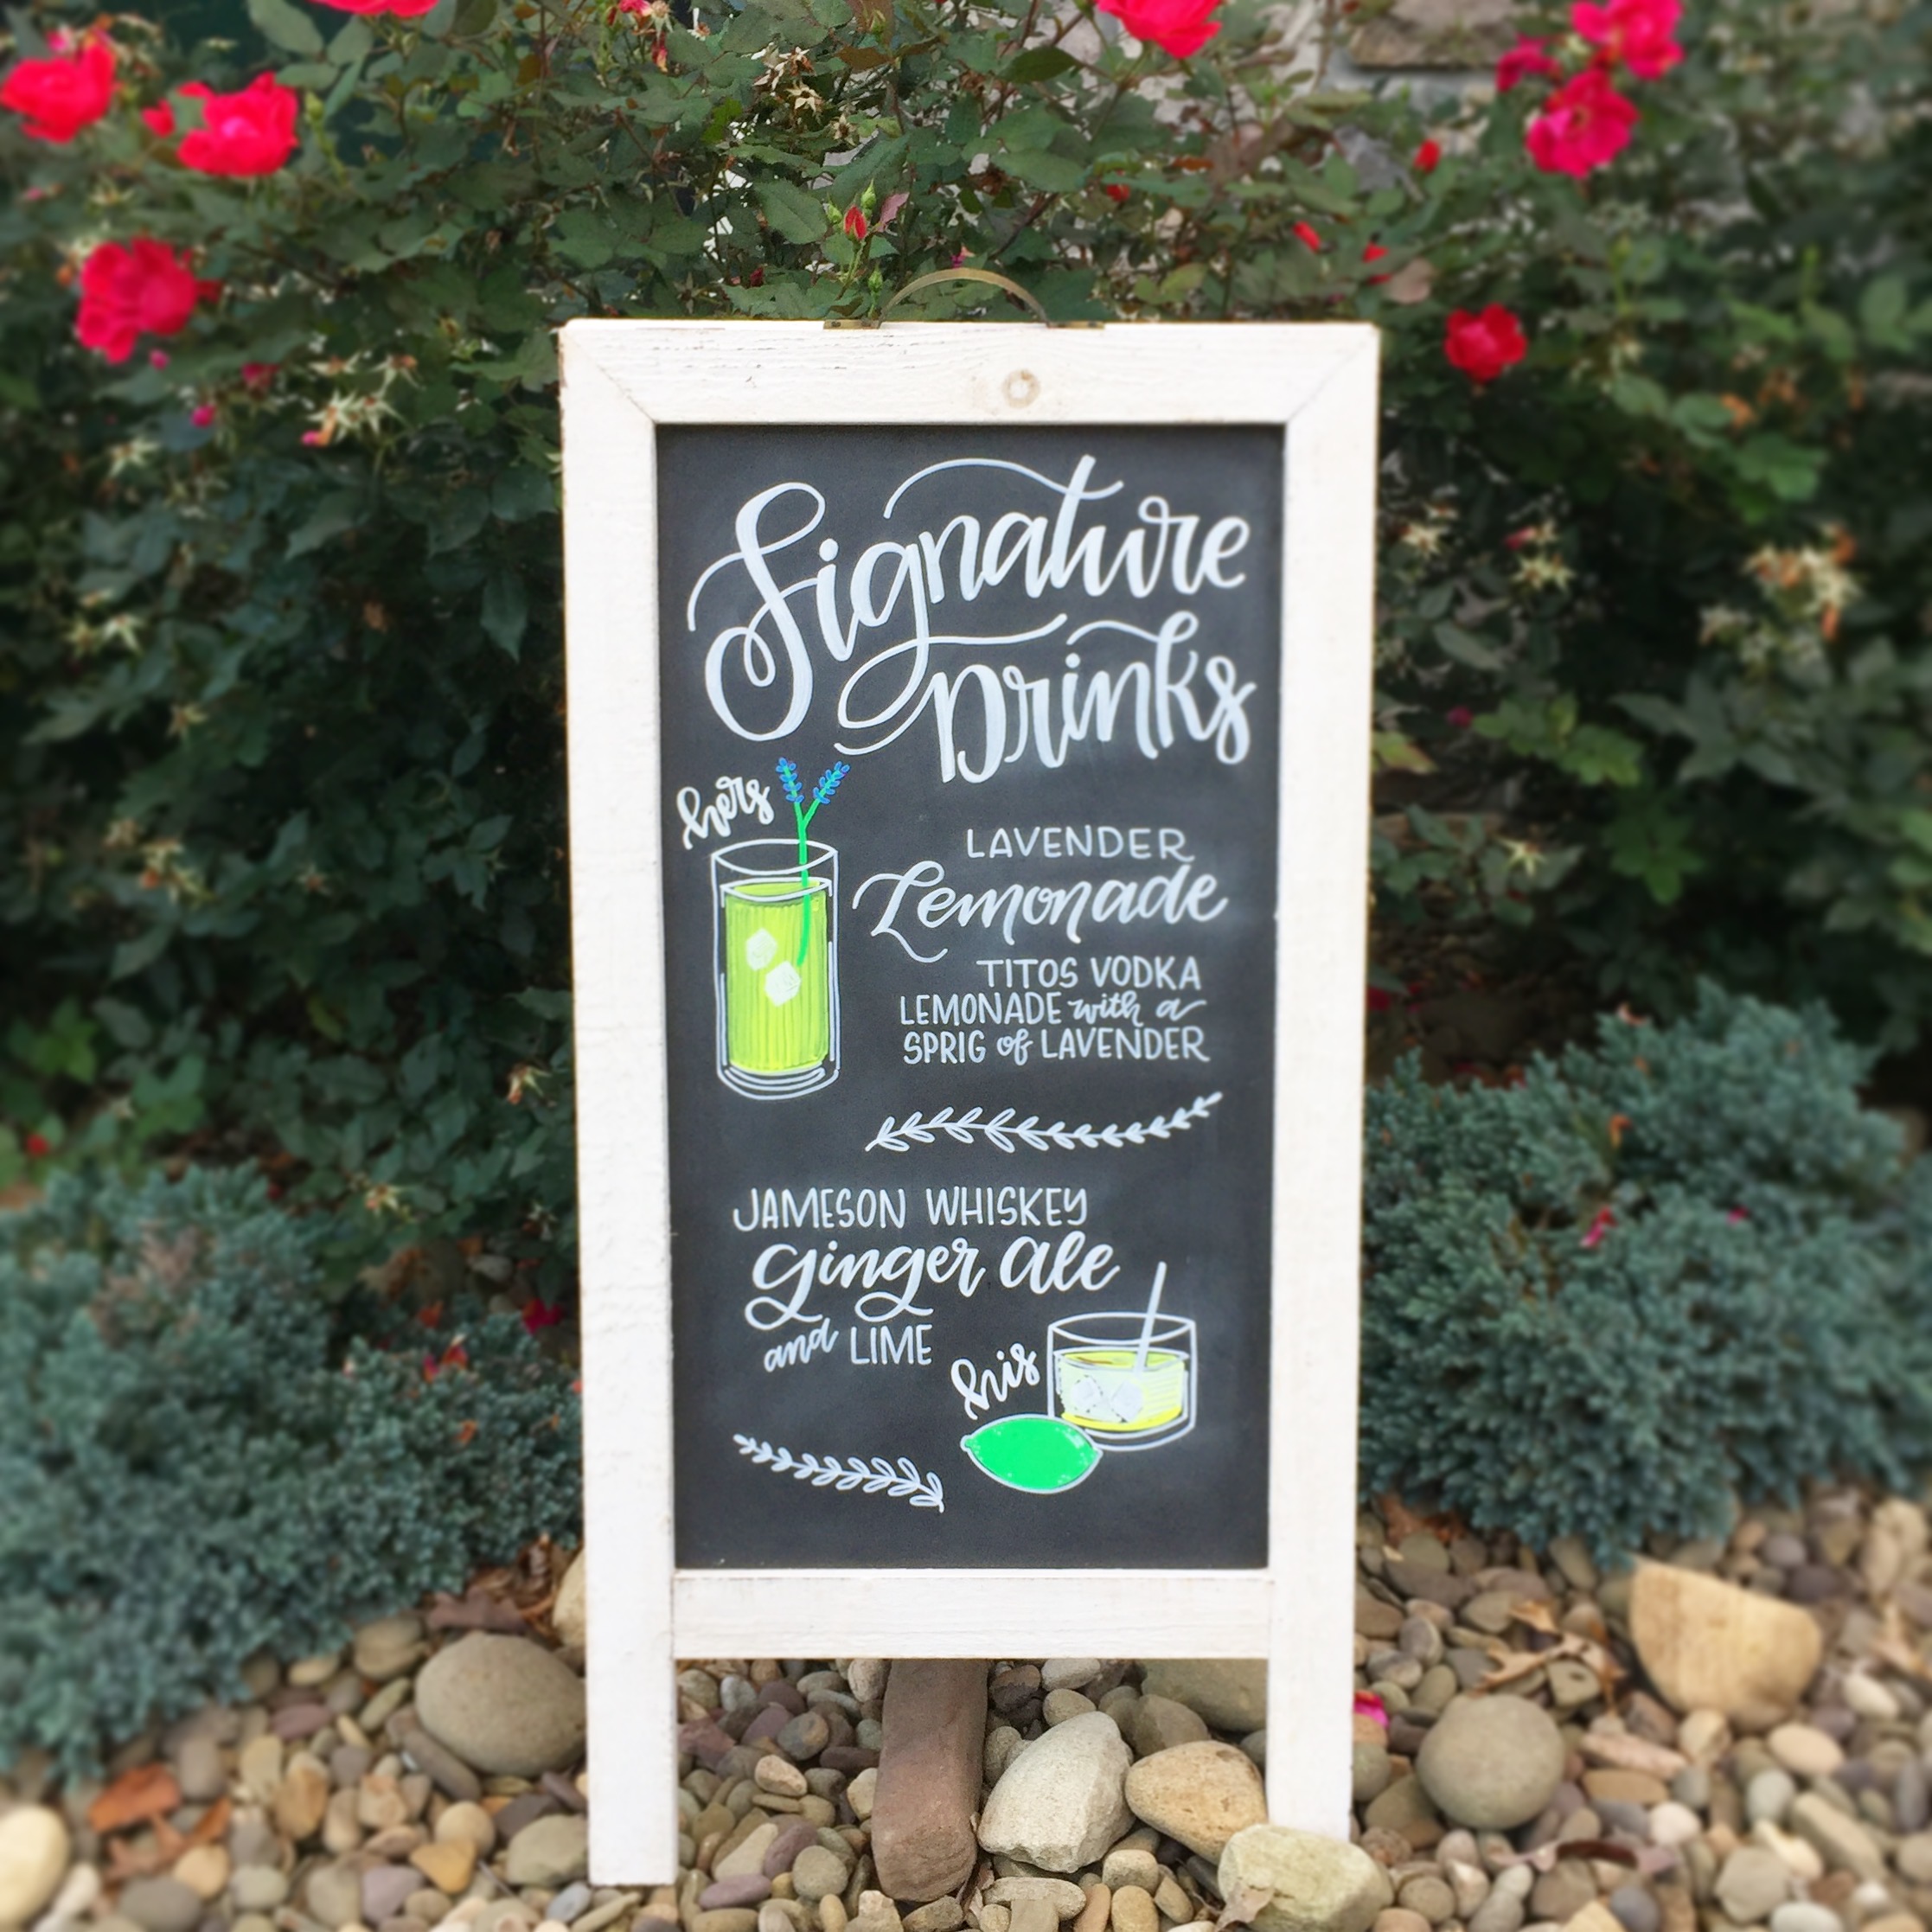 Signature
Drinks
hers
LAVENDER
Lemonade
TITOS VODKA
LEMONADE with a
SPRIG of LAVENDER
JAMESON WHISKEY
ginger ale
and LIME
his